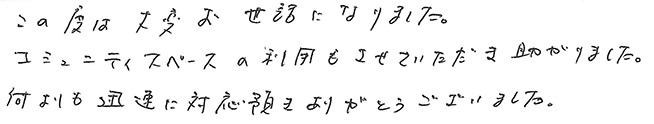 この度は大変お世話になりました。
コミュニティスペースの利用もさせていただき助かりました。
何よりも迅速に対応頂きありがとうございました。